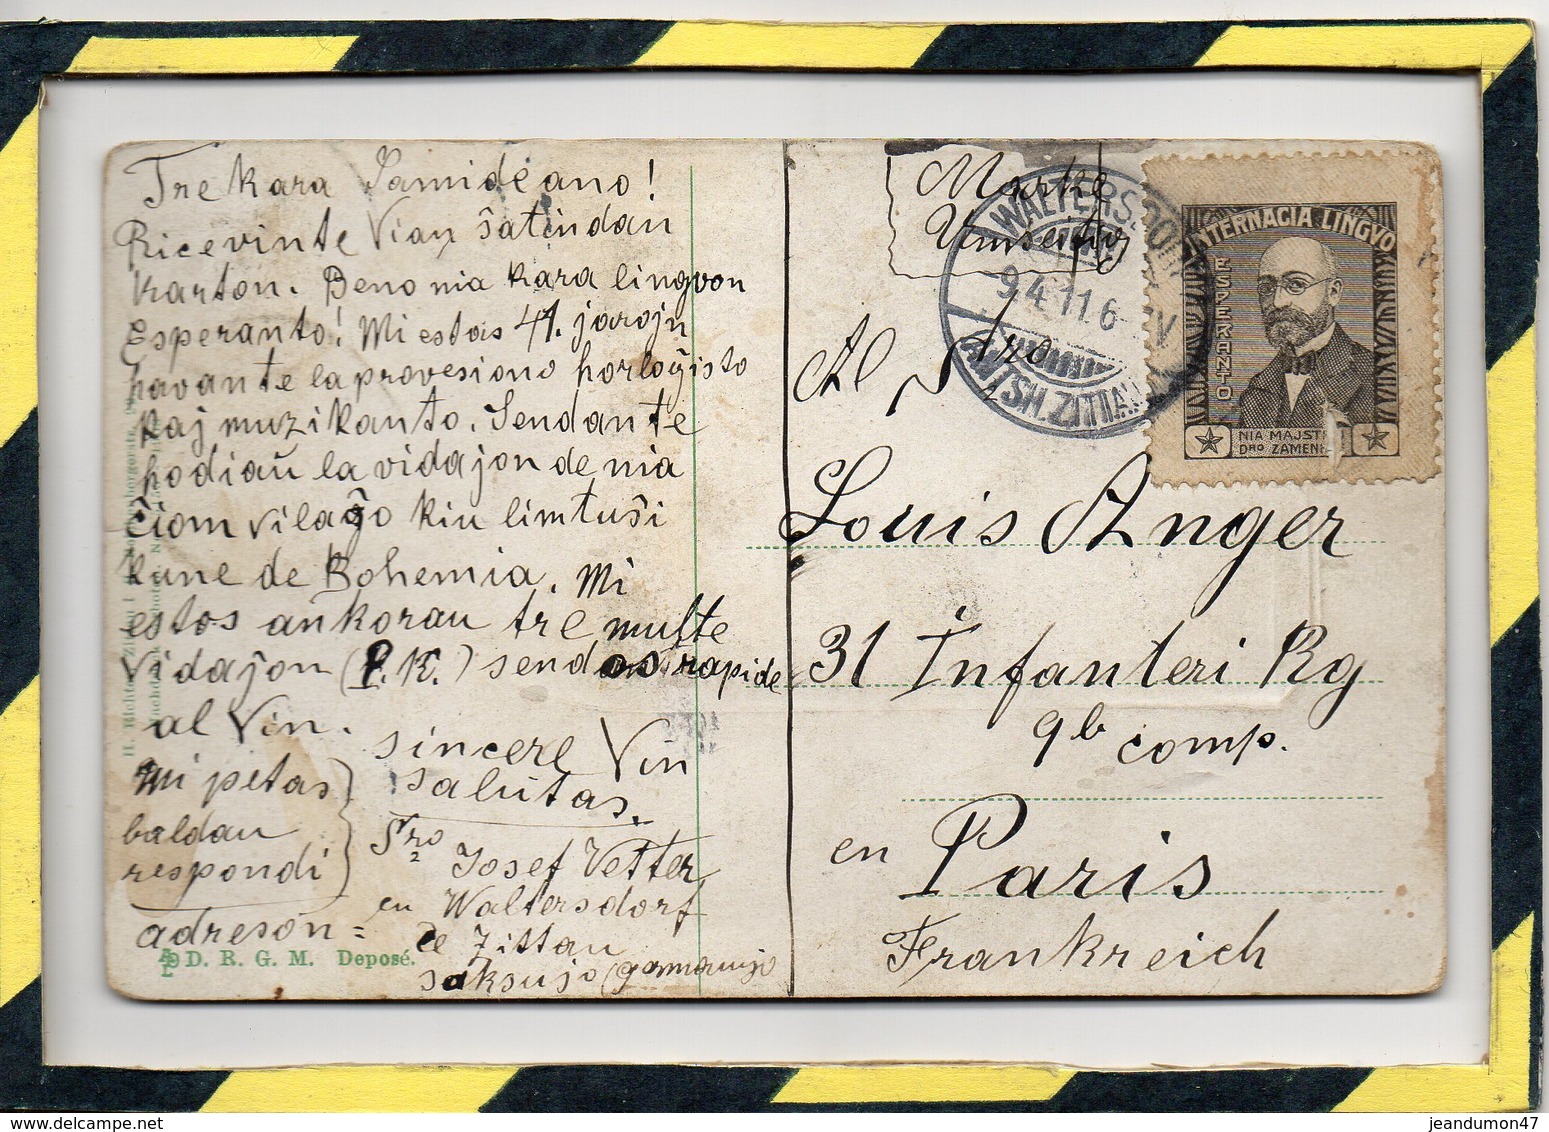 Tre kara Samideano!
Ricevinte Vian ŝatindan
karton. Beno nia kara lingvon
Esperanto! Mi estas 41. jarojn
havante la provesiono horloĝisto
kaj muzikanto. Sendante
hodiaŭ la vidajon de nia
ĉiom vilaĝo kiu limtuŝi
kune de Bohemia. Mi
estos ankorau tre multe
vidaĵon (P.K.) sendos rapide
al Vin.
sincere Vin
salutas.
Mi petas
baldau
respondi
adreson =
Sro Josef Vetter
en Waltersdorf
de Zittau
saksujo (germanujo
D. R. G. M. Deposé.
Marke
Umseitig
WALTERSDORF
9.4.11.6-
AMTSH. ZITTAU
INTERNACIA LINGVO
ESPERANTO
NIA MAJST
Dro ZAMENH
Al Sro
Louis Anger
31 Infanteri Rg
9b comp.
en Paris
Frankreich
www.delcampe.net
jeandumon47